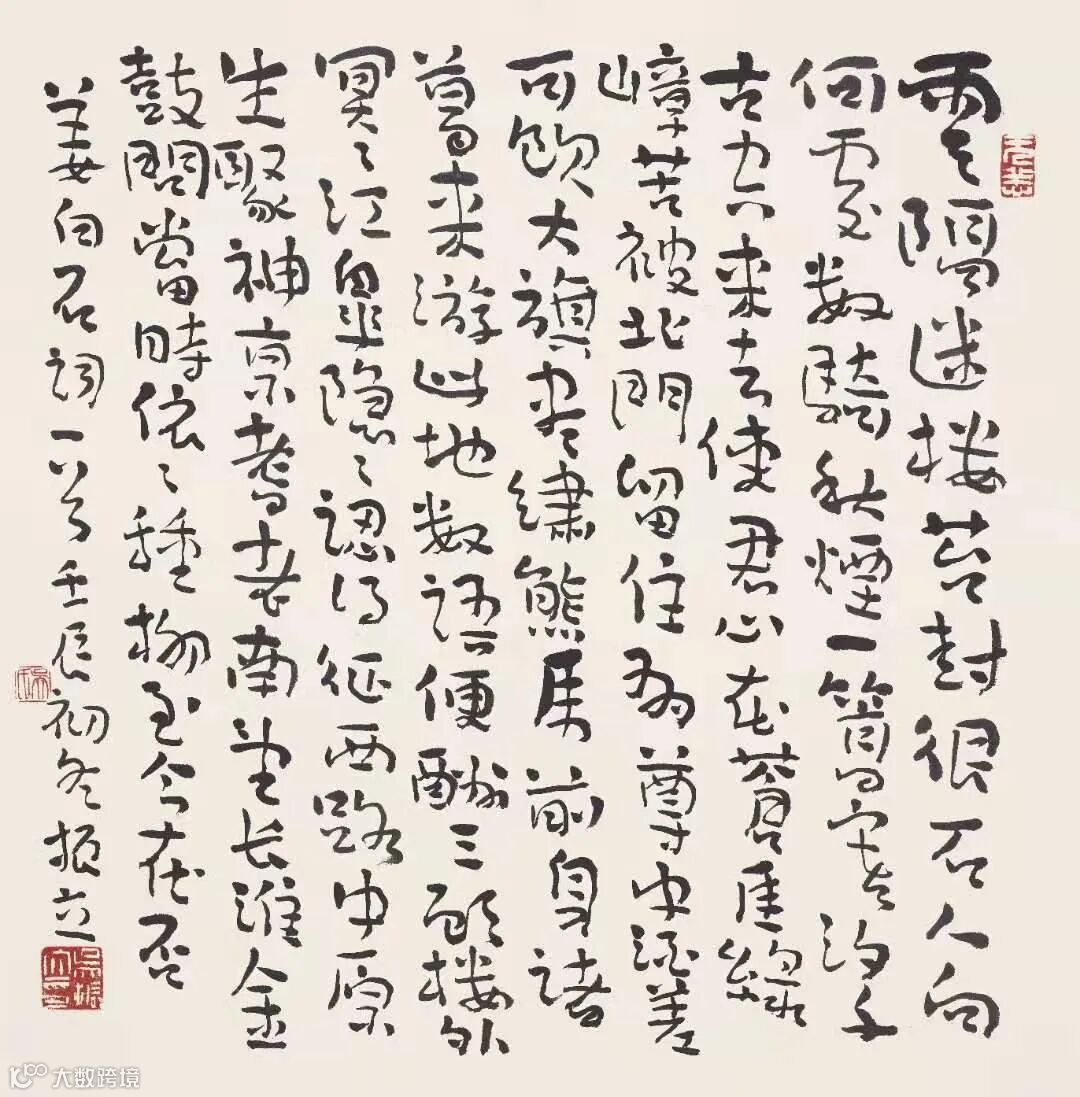 雲隔迷楼苔封很石人向
何處数騎秋煙一篙寒汐千
古空来去使君心在蒼厓緑
嶂苦被北門留住有尊中酒差
可飲大旗尽繡熊虎前身諸
葛来游此地数語便酬三顧楼外
冥〻江皋隐〻認得征西路中原
生聚神京耆老南望长淮金
鼓問當時依〻種柳至今在否
姜白石詞一首壬辰初冬振立
大数跨境